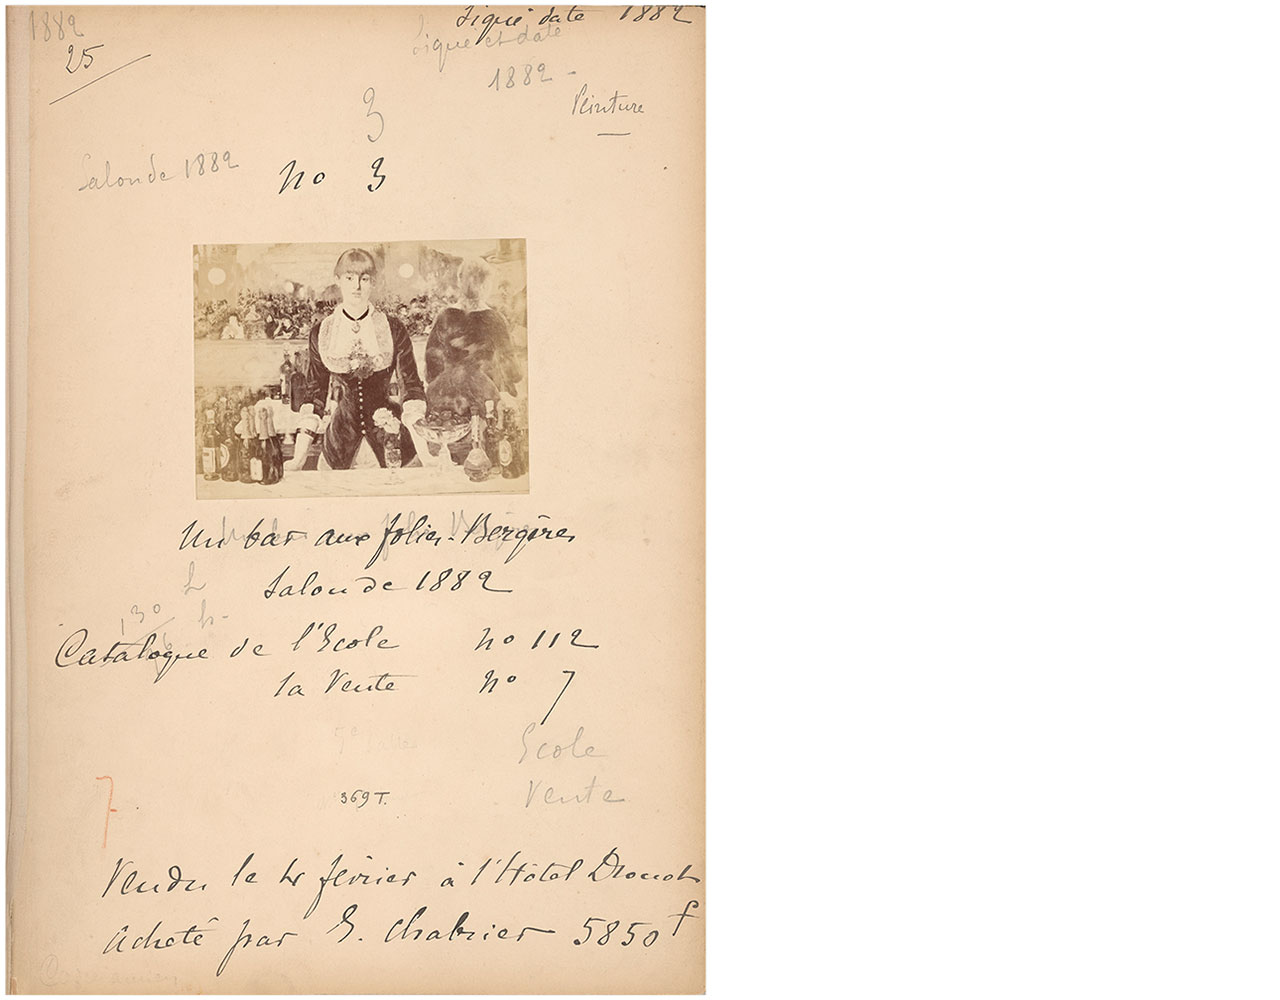 1882
Signé daté 1882
25
Signé et daté
1882 -
Peinture
3
Salon de 1882
No 3
Un bar aux folies-Bergères
Salon de 1882
130
Catalogue de l'Ecole No 112
la Vente No 7
Ecole
7
369 T.
Vente
Vendu le 4 février à l'Hôtel Drouot
acheté par E. Chabrier 5850 f